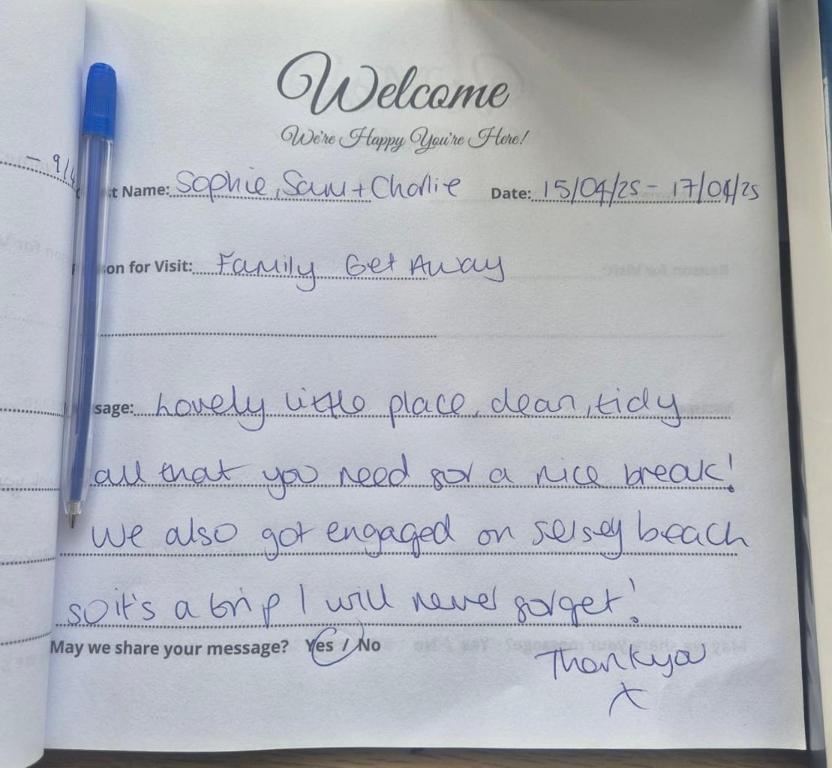 Welcome
We're Happy You're Here!
- 9/4
t Name: Sophie, Sam + Charlie Date: 15/04/25 - 17/04/25
on for Visit: Family Get Away
sage: Lovely little place, clean, tidy
all that you need for a nice break!
We also got engaged on selsey beach
so it's a trip I will never forget!
May we share your message? Yes / No
Thankyou
x